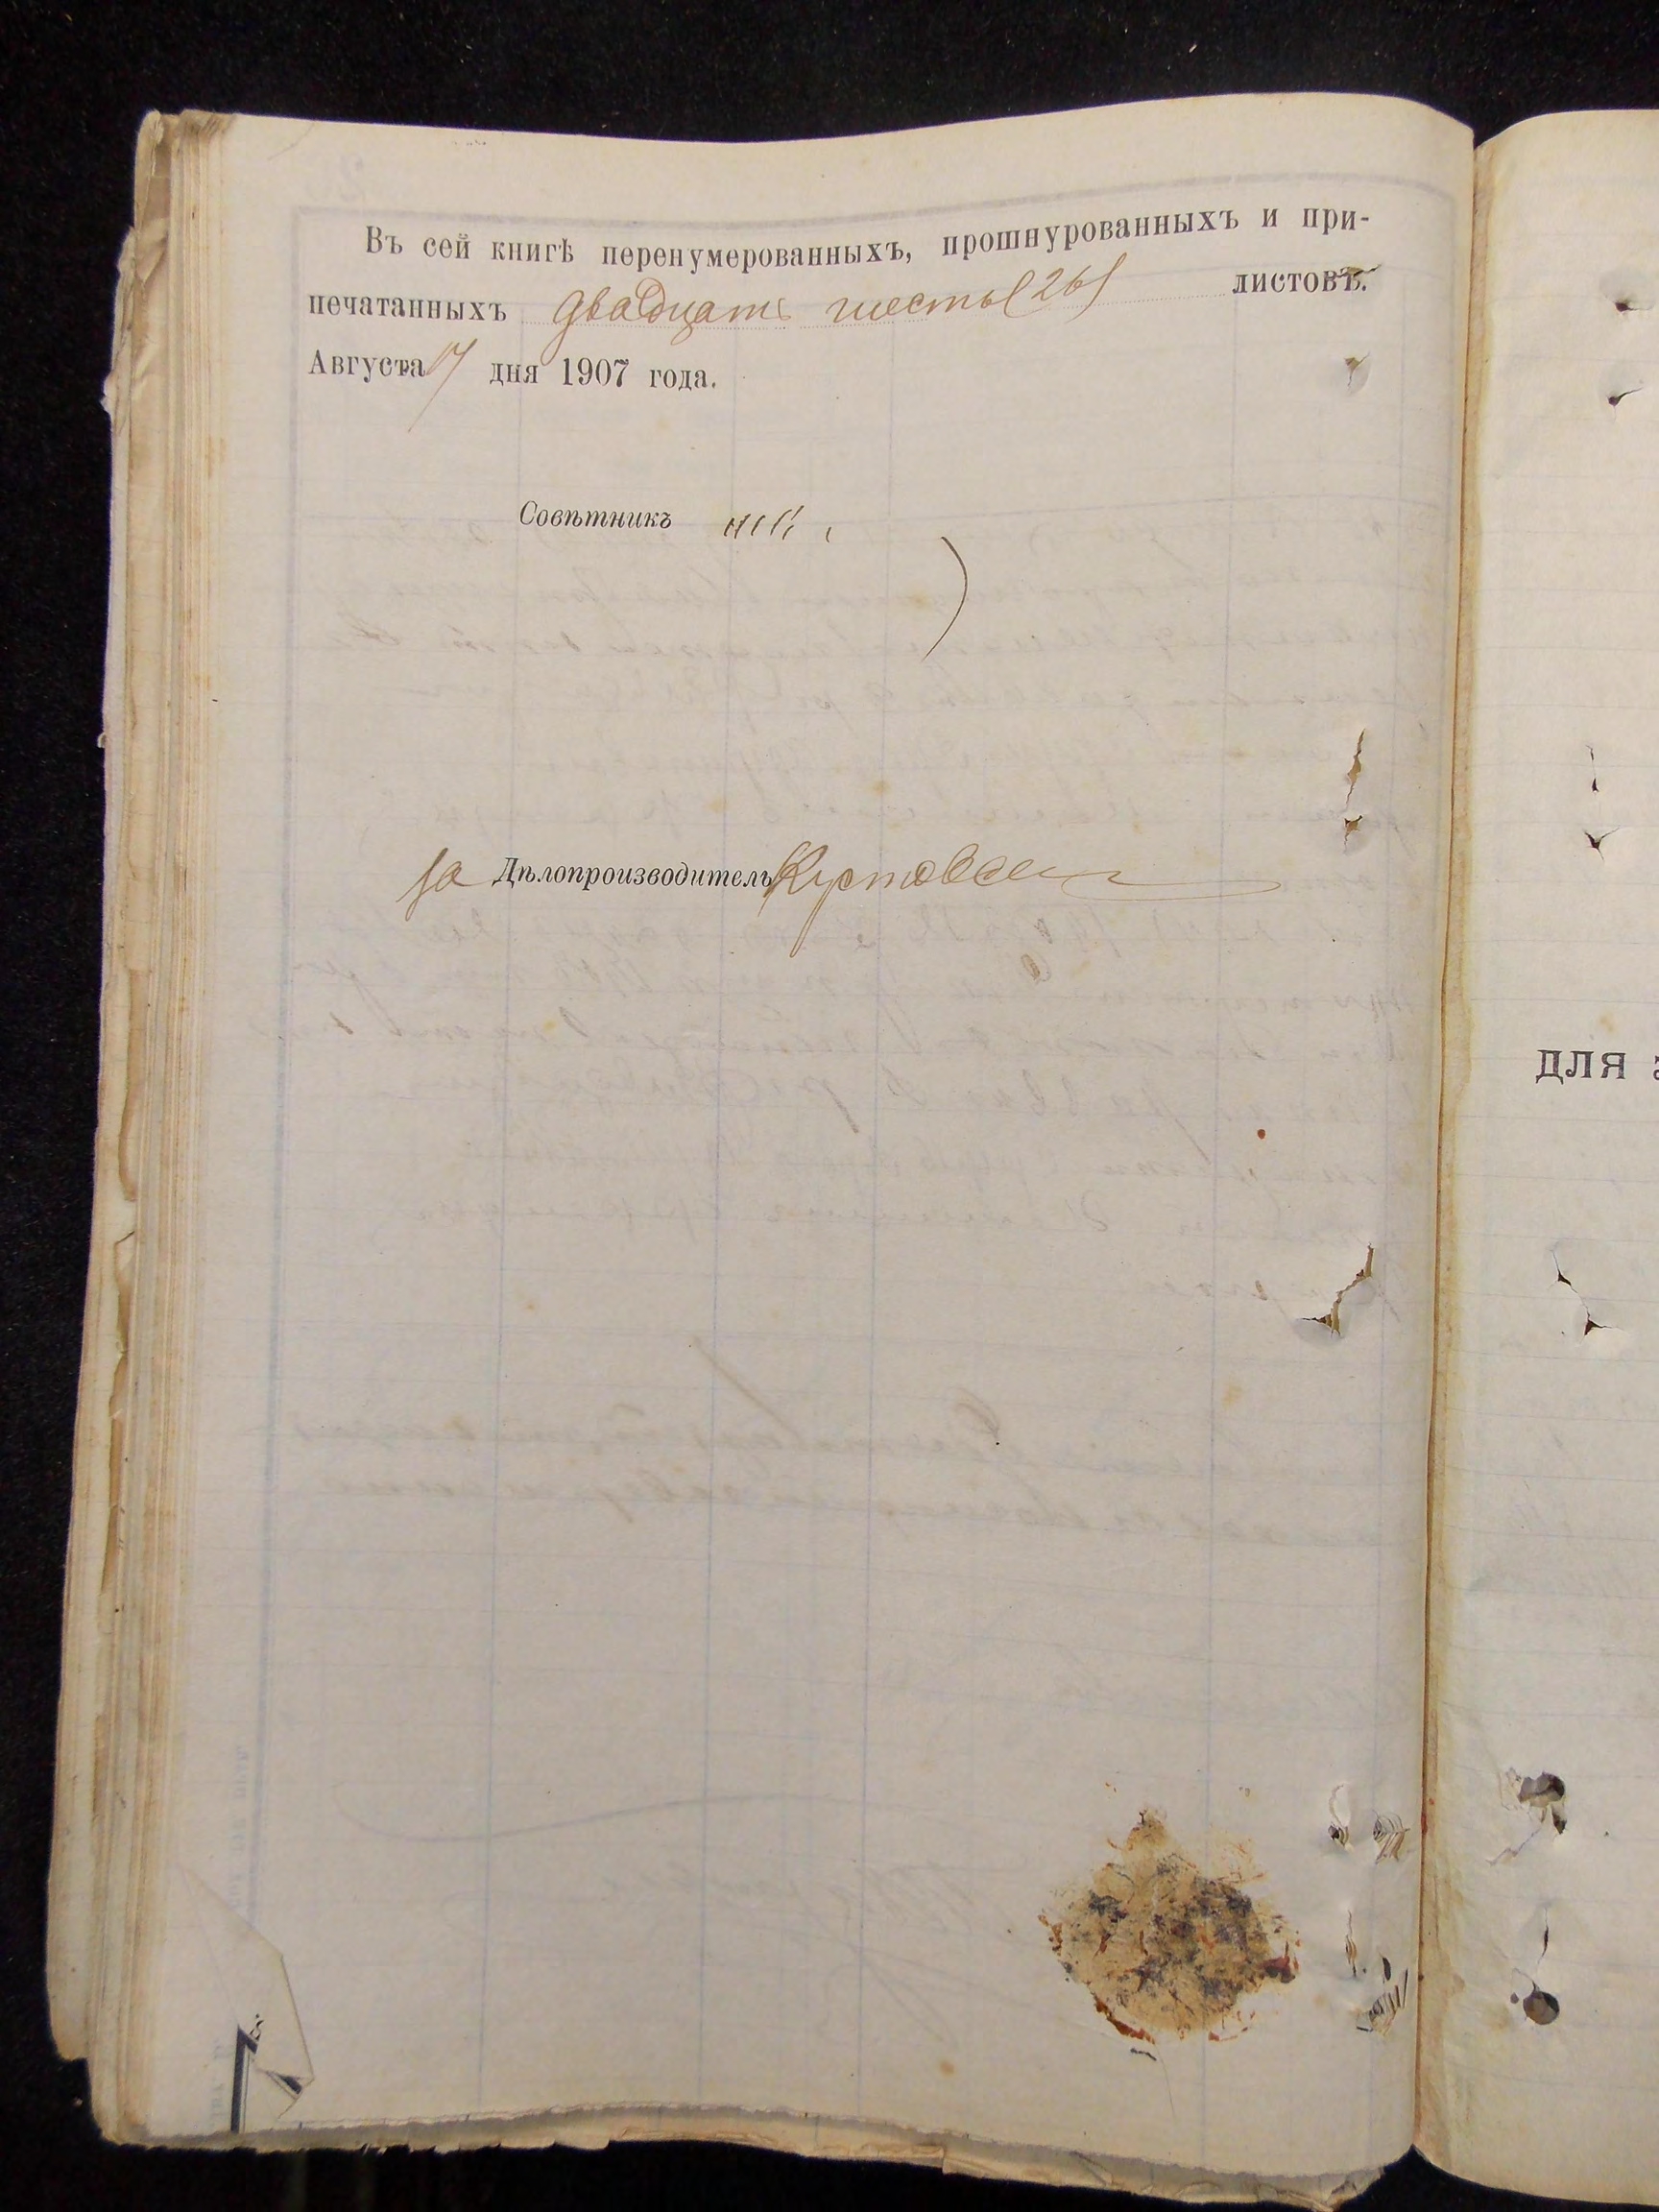 Въ сей книгѣ перенумерованныхъ, прошнурованныхъ и при-
печатанныхъ двадцать шесть (26) листовъ.
Августа 17 дня 1907 года.
Совѣтникъ
За Дѣлопроизводитель
для